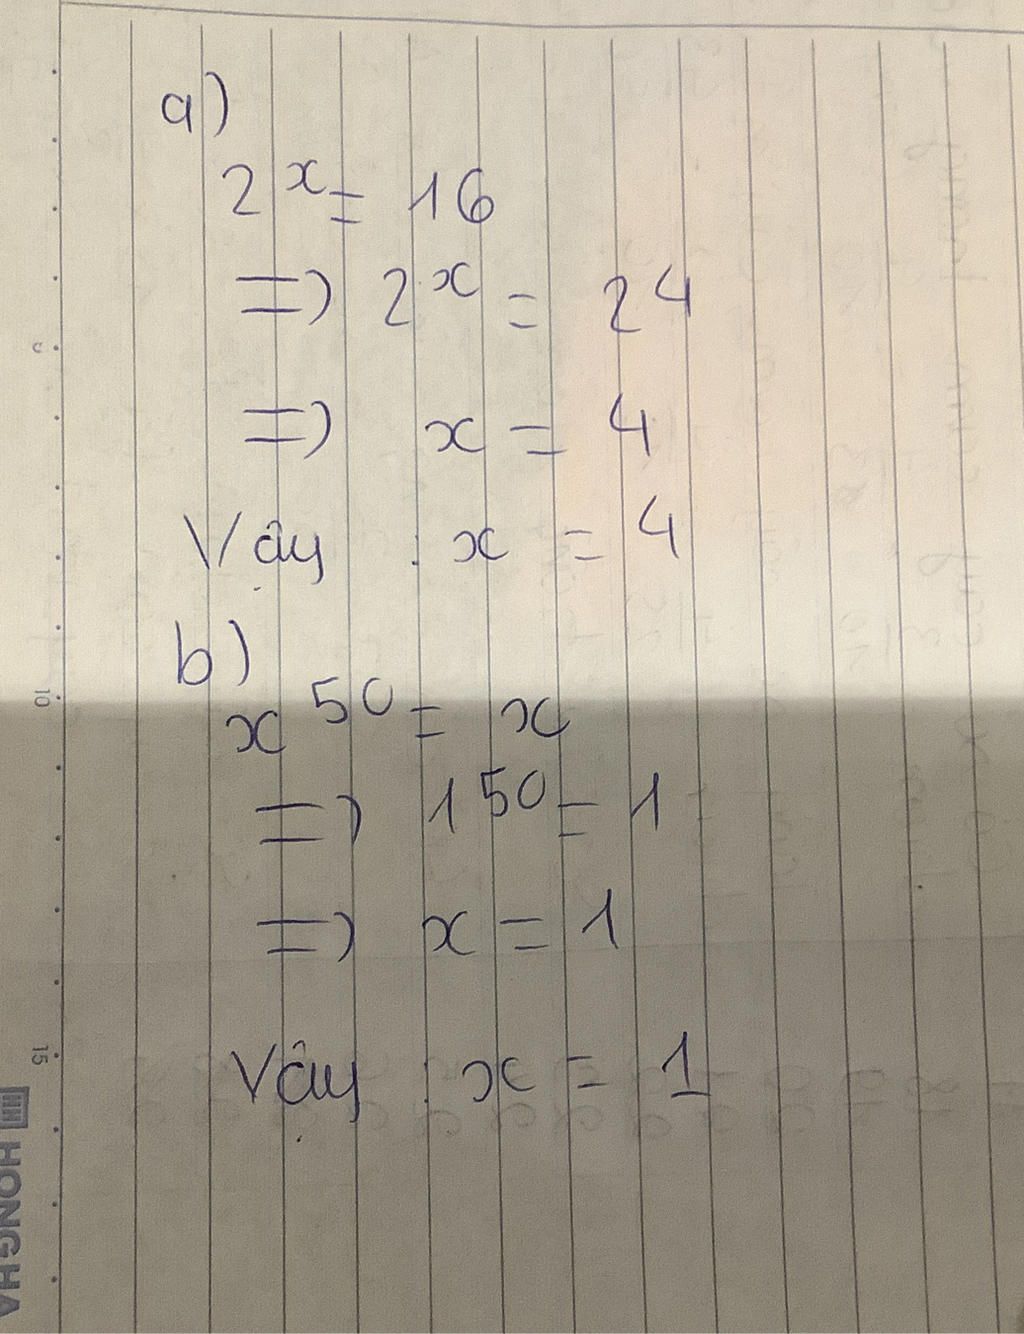 a)
2^x = 16
=> 2^x = 2^4
=> x = 4
Vậy : x = 4
b)
x^50 = x
=> 1^50 = 1
=> x = 1
Vậy : x = 1
10
15
HONG HA